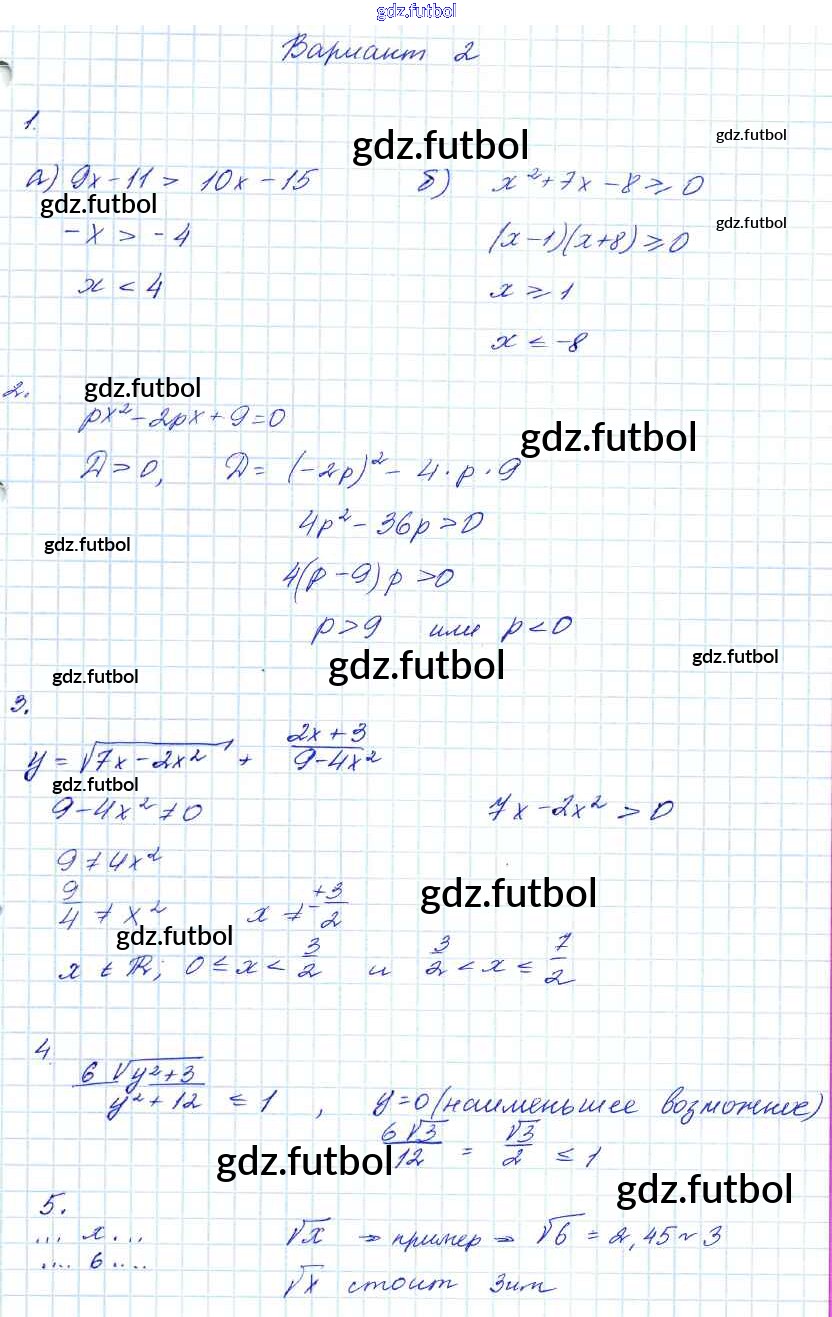 gdz.futbol
Вариант 2
1.
gdz.futbol
gdz.futbol
а) 9x - 11 > 10x - 15
б) x² + 7x - 8 ≥ 0
gdz.futbol
gdz.futbol
-x > -4
(x - 1)(x + 8) ≥ 0
x < 4
x ≥ 1
x ≤ -8
2.
gdz.futbol
px² - 2px + 9 = 0
gdz.futbol
Д > 0, Д = (-2p)² - 4 · p · 9
4p² - 36p > 0
gdz.futbol
4(p - 9)p > 0
p > 9 или p < 0
gdz.futbol
gdz.futbol
gdz.futbol
3.
y = √(7x - 2x²) + (2x + 3)/(9 - 4x²)
gdz.futbol
9 - 4x² ≠ 0
7x - 2x² > 0
9 ≠ 4x²
gdz.futbol
9/4 ≠ x² x ≠ ±3/2
gdz.futbol
x ∈ R; 0 ≤ x < 3/2 и 3/2 < x ≤ 7/2
4
6√(y² + 3)/(y² + 12) ≤ 1, y = 0 (наименьшее возможное)
6√3/12 = √3/2 ≤ 1
gdz.futbol
gdz.futbol
5.
... x ... √x → пример → √6 = 2,45 ~ 3
.... 6 ....
√x стоит 3им